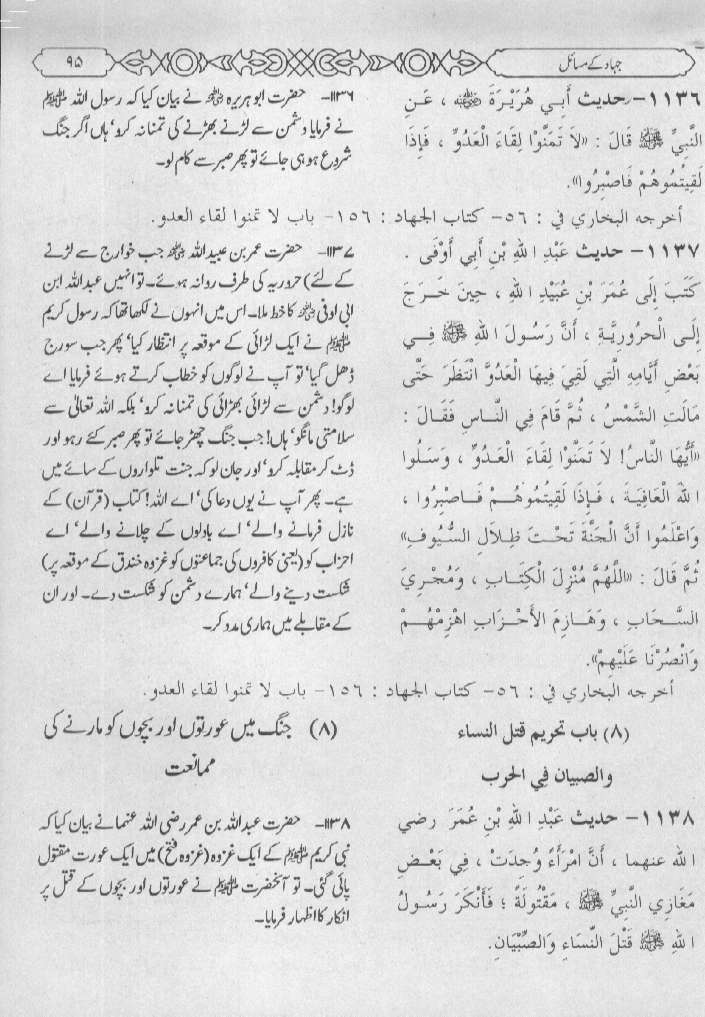 جہاد کے مسائل
۹۵
١١٣٦- حديث أَبِي هُرَيْرَةَ رضي الله عنه ، عَنِ
النَّبِيِّ ﷺ قَالَ : «لاَ تَمَنَّوْا لِقَاءَ الْعَدُوِّ ، فَإِذَا
لَقِيتُمُوهُمْ فَاصْبِرُوا».
۱۱۳۶- حضرت ابو ہریرہ رضی اللہ عنہ نے بیان کیا کہ رسول اللہ ﷺ
نے فرمایا دشمن سے لڑنے بھڑنے کی تمنا نہ کرو‘ ہاں اگر جنگ
شروع ہو ہی جائے تو پھر صبر سے کام لو۔
أخرجه البخاري في : ٥٦- كتاب الجهاد : ١٥٦- باب لا تمنوا لقاء العدو.
١١٣٧- حديث عَبْدِ اللهِ بْنِ أَبِي أَوْفَى .
كَتَبَ إِلَى عُمَرَ بْنِ عُبَيْدِ اللهِ ، حِينَ خَرَجَ
إِلَى الْحَرُورِيَّةِ ، أَنَّ رَسُولَ اللهِ ﷺ فِي
بَعْضِ أَيَّامِهِ الَّتِي لَقِيَ فِيهَا الْعَدُوَّ انْتَظَرَ حَتَّى
مَالَتِ الشَّمْسُ ، ثُمَّ قَامَ فِي النَّاسِ فَقَالَ :
«أَيُّهَا النَّاسُ! لاَ تَمَنَّوْا لِقَاءَ الْعَدُوِّ ، وَسَلُوا
اللهَ الْعَافِيَةَ ، فَإِذَا لَقِيتُمُوهُمْ فَاصْبِرُوا ،
وَاعْلَمُوا أَنَّ الْجَنَّةَ تَحْتَ ظِلاَلِ السُّيُوفِ»
ثُمَّ قَالَ : «اللَّهُمَّ مُنْزِلَ الْكِتَابِ ، وَمُجْرِيَ
السَّحَابِ ، وَهَازِمَ الأَحْزَابِ اهْزِمْهُمْ
وَانْصُرْنَا عَلَيْهِمْ».
۱۱۳۷- حضرت عمر بن عبید اللہ رضی اللہ عنہ جب خوارج سے لڑنے
کے لئے) حروریہ کی طرف روانہ ہوئے۔ تو انہیں عبد اللہ ابن
ابی اوفی رضی اللہ عنہ کا خط ملا۔ اس میں انہوں نے لکھا تھا کہ رسول کریم
ﷺ نے ایک لڑائی کے موقعہ پر انتظار کیا‘ پھر جب سورج
ڈھل گیا‘ تو آپ نے لوگوں کو خطاب کرتے ہوئے فرمایا اے
لوگو! دشمن سے لڑائی بھڑائی کی تمنا نہ کرو‘ بلکہ اللہ تعالٰی سے
سلامتی مانگو‘ ہاں! جب جنگ چھڑ جائے تو پھر صبر کئے رہو اور
ڈٹ کر مقابلہ کرو‘ اور جان لو کہ جنت تلواروں کے سائے میں
ہے۔ پھر آپ نے یوں دعا کی‘ اے اللہ! کتاب (قرآن) کے
نازل فرمانے والے‘ اے بادلوں کے چلانے والے‘ اے
احزاب کو (یعنی کافروں کی جماعتوں کو غزوہ خندق کے موقعہ پر)
شکست دینے والے‘ ہمارے دشمن کو شکست دے۔ اور ان
کے مقابلے میں ہماری مدد کر۔
أخرجه البخاري في : ٥٦- كتاب الجهاد : ١٥٦- باب لا تمنوا لقاء العدو.
(٨) باب تحريم قتل النساء
والصبيان في الحرب
(۸) جنگ میں عورتوں اور بچوں کو مارنے کی
ممانعت
١١٣٨- حديث عَبْدِ اللهِ بْنِ عُمَرَ رضي
الله عنهما ، أَنَّ امْرَأَةً وُجِدَتْ ، فِي بَعْضِ
مَغَازِي النَّبِيِّ ﷺ ، مَقْتُولَةً ؛ فَأَنْكَرَ رَسُولُ
اللهِ ﷺ قَتْلَ النِّسَاءِ وَالصِّبْيَانِ.
۱۱۳۸- حضرت عبد اللہ بن عمر رضی اللہ عنہما نے بیان کیا کہ
نبی کریم ﷺ کے ایک غزوہ (غزوہ فتح) میں ایک عورت مقتول
پائی گئی۔ تو آنحضرت ﷺ نے عورتوں اور بچوں کے قتل پر
انکار کا اظہار فرمایا۔